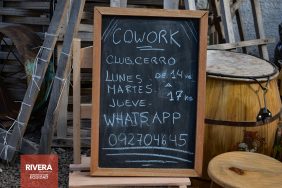 COWORK
CLUB CERRO
LUNES DE 14 hs
MARTES- A 17 hs
JUEVE-
WHATSAPP
092704645
RIVERA